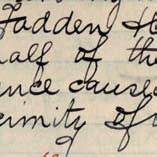 Fadden H
half of the
ence caused
ximity of